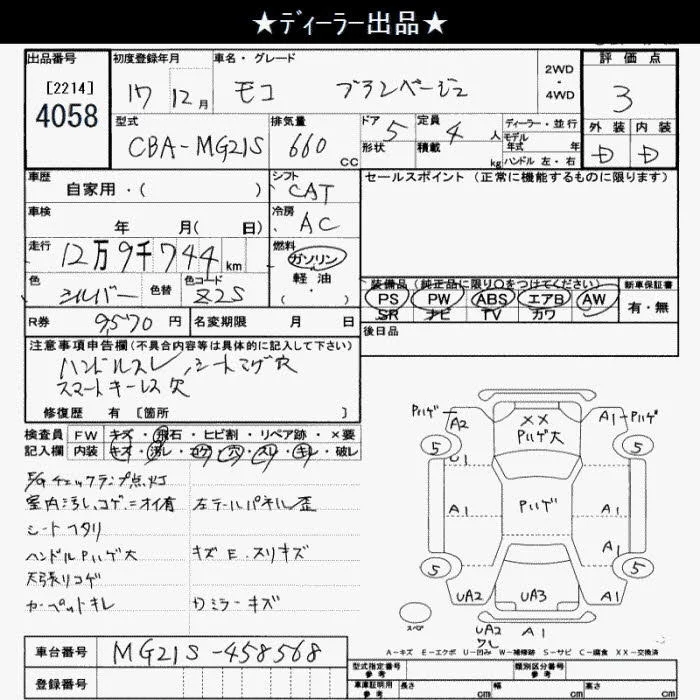 ★ディーラー出品★
出品番号
[2214]
4058
初度登録年月
17 12月
車名・グレード
モコ ブランベージュ
2WD
・
4WD
評価点
3
型式
CBA-MG21S
排気量
660 CC
ドア 5
形状
定員 4 人
積載 kg
ディーラー・並行
モデル
年式 年
ハンドル 左・右
外装 内装
D D
車歴
自家用・( )
シフト
CAT
セールスポイント (正常に機能するものに限ります)
車検
年 月( 日)
冷房
AC
走行
12万9千744 km
燃料
ガソリン
軽油
( ・ )
色
シルバー
色替
色コード
Z2S
装備品 (純正品に限り○をつけてください)
PS PW ABS エアB AW
SR ナビ TV カワ
新車保証書
有・無
R券 9570 円
名変期限 月 日
後日品
注意事項申告欄(不具合内容等は具体的に記入して下さい)
ハンドルスレ、シートコゲ穴
スマートキーレス欠
修復歴 有 [箇所 ]
検査員
記入欄
FW キズ・飛石・ヒビ割・リペア跡・×要
内装 キズ・汚レ・コゲ・穴・スリ・キレ・破レ
E/Gチェックランプ点灯
室内汚レ、コゲ、ニオイ有 左テールパネル歪
シートヘタリ
ハンドルPハゲ大 キズE.スリキズ
天張リコゲ
カーペットキレ Dミラーキズ
Pハゲ A2 ×× A1-Pハゲ
Pハゲ大
5 5
U1
A1 Pハゲ A1
A1
5 5
UA2 UA3 A1
スペア
UA2 A1
ワレ
A-キズ E-エクボ U-凹み W-補修跡 S-サビ C-腐食 XX-交換済
車台番号 MG21S-458568
登録番号
型式指定番号
参考
類別区分番号
参考
車庫証明用
参考
長さ cm 幅 cm 高さ cm